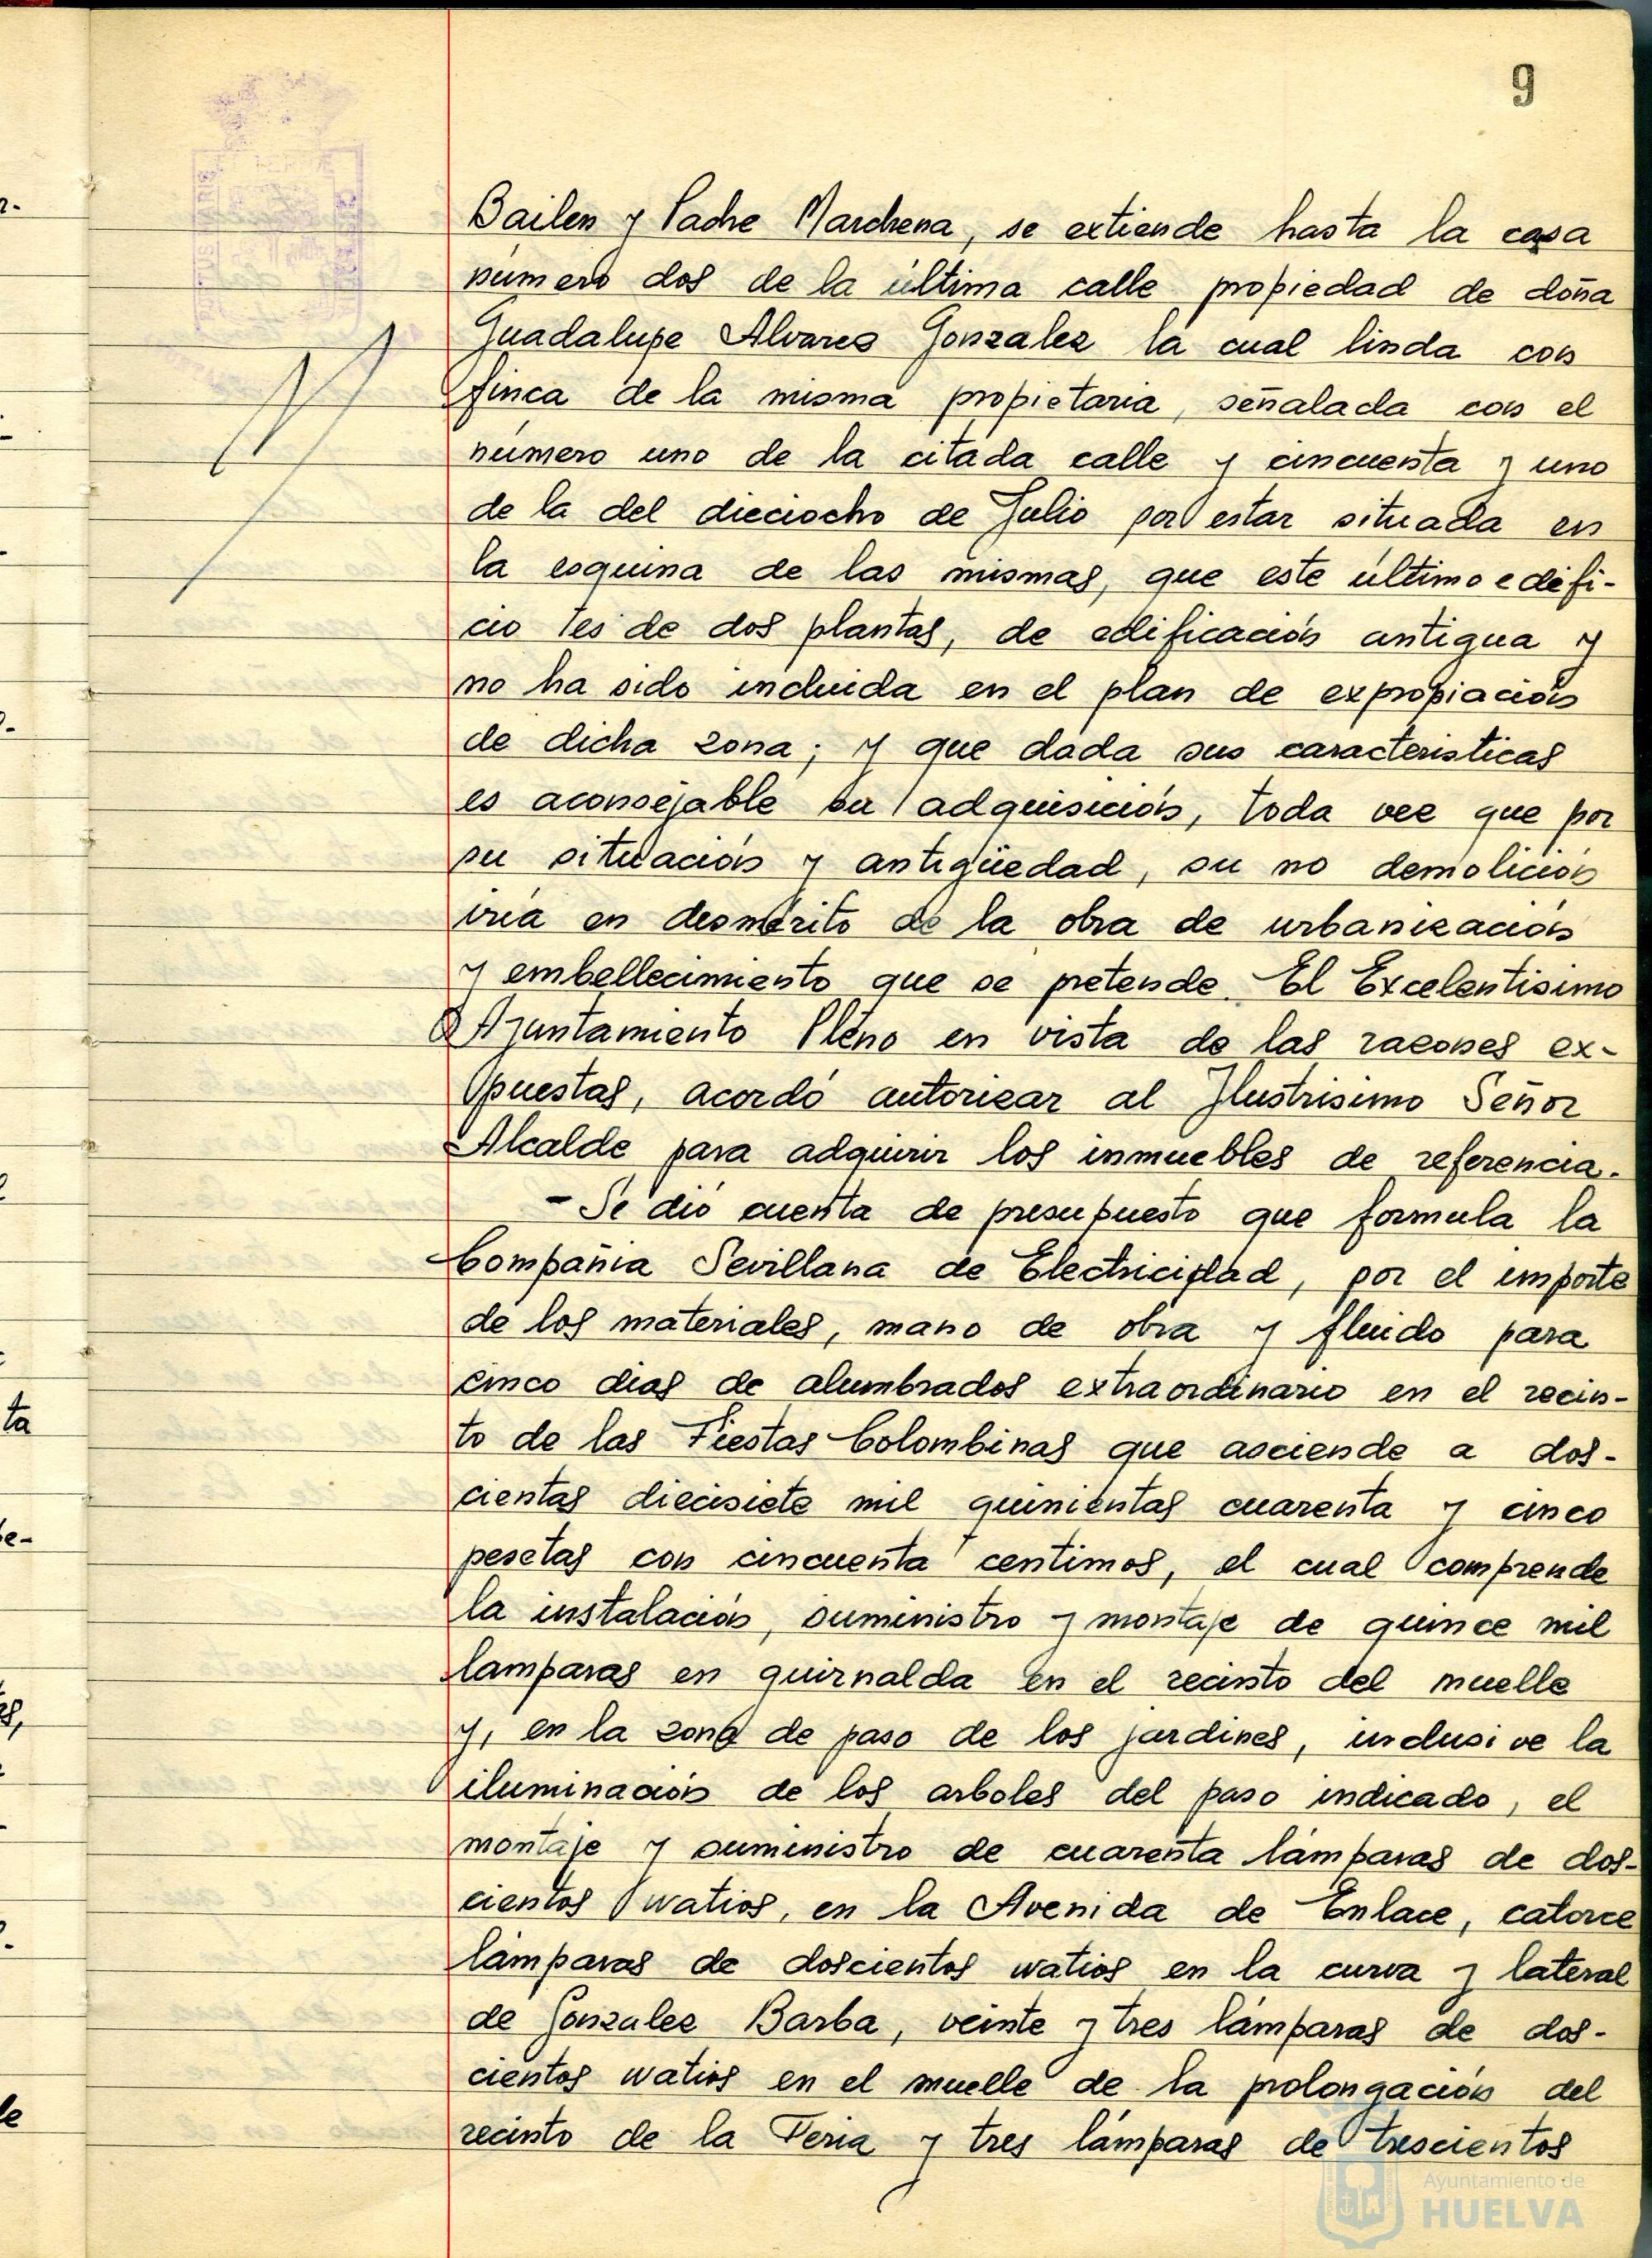 9
Bailen y Padre Marchena, se extiende hasta la casa
número dos de la última calle propiedad de doña
Guadalupe Alvarez Gonzalez la cual linda con
finca de la misma propietaria, señalada con el
número uno de la citada calle y cincuenta y uno
de la del dieciocho de Julio por estar situada en
la esquina de las mismas, que este último edifi-
cio es de dos plantas, de edificación antigua y
no ha sido incluida en el plan de expropiación
de dicha zona; y que dada sus caracteristicas
es aconsejable su adquisición, toda vez que por
su situación y antigüedad, su no demolición
iría en desmérito de la obra de urbanización
y embellecimiento que se pretende. El Excelentisimo
Ayuntamiento Pleno en vista de las razones ex-
puestas, acordó autorizar al Ilustrisimo Señor
Alcalde para adquirir los inmuebles de referencia.
- Se dió cuenta de presupuesto que formula la
Compañia Sevillana de Electricidad, por el importe
de los materiales, mano de obra y fluido para
cinco dias de alumbrados extraordinario en el recin-
to de las Fiestas Colombinas que asciende a dos-
cientas diecisiete mil quinientas cuarenta y cinco
pesetas con cincuenta centimos, el cual comprende
la instalación, suministro y montaje de quince mil
lamparas en guirnalda en el recinto del muelle
y, en la zona de paso de los jardines, inclusive la
iluminación de los arboles del paso indicado, el
montaje y suministro de cuarenta lámparas de dos-
cientos watios, en la Avenida de Enlace, catorce
lámparas de doscientos watios en la curva y lateral
de Gonzalez Barba, veinte y tres lámparas de dos-
cientos watios en el muelle de la prolongación del
recinto de la Feria y tres lámparas de trescientos
Ayuntamiento de
HUELVA